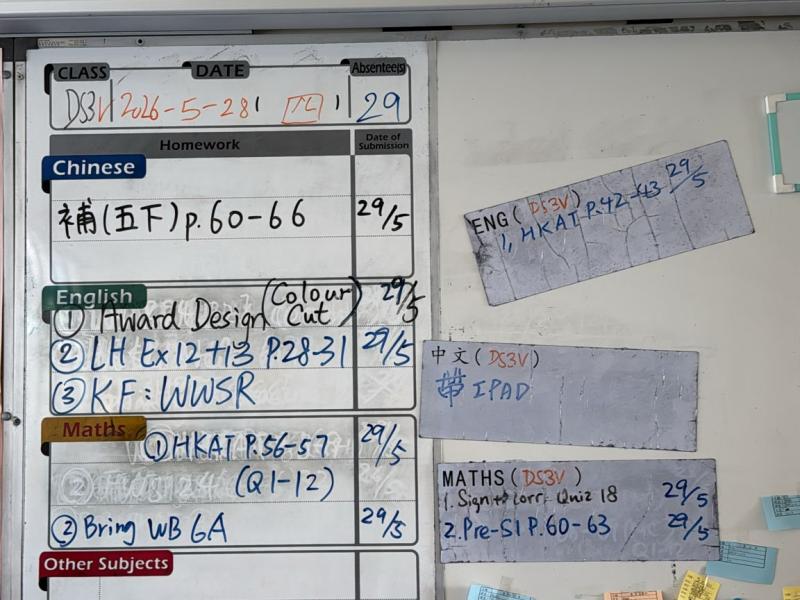 CLASS DATE Absentee(s)
DS3V 2026-5-28 29
Homework Date of Submission
Chinese
補(五下)p.60-66 29/5
English
① Award Design (Colour Cut) 29/5
② LH Ex12+13 P.28-31 29/5
③ KF: WWSR
Maths
① HKAT P.56-57 29/5
(Q1-12)
② Bring WB 6A 29/5
Other Subjects
ENG (DS3V)
1, HKAT P.42-43 29/5
中文(DS3V)
帶 IPAD
MATHS (DS3V)
1. Sign + Corr: Quiz 18 29/5
2. Pre-S1 P.60-63 29/5